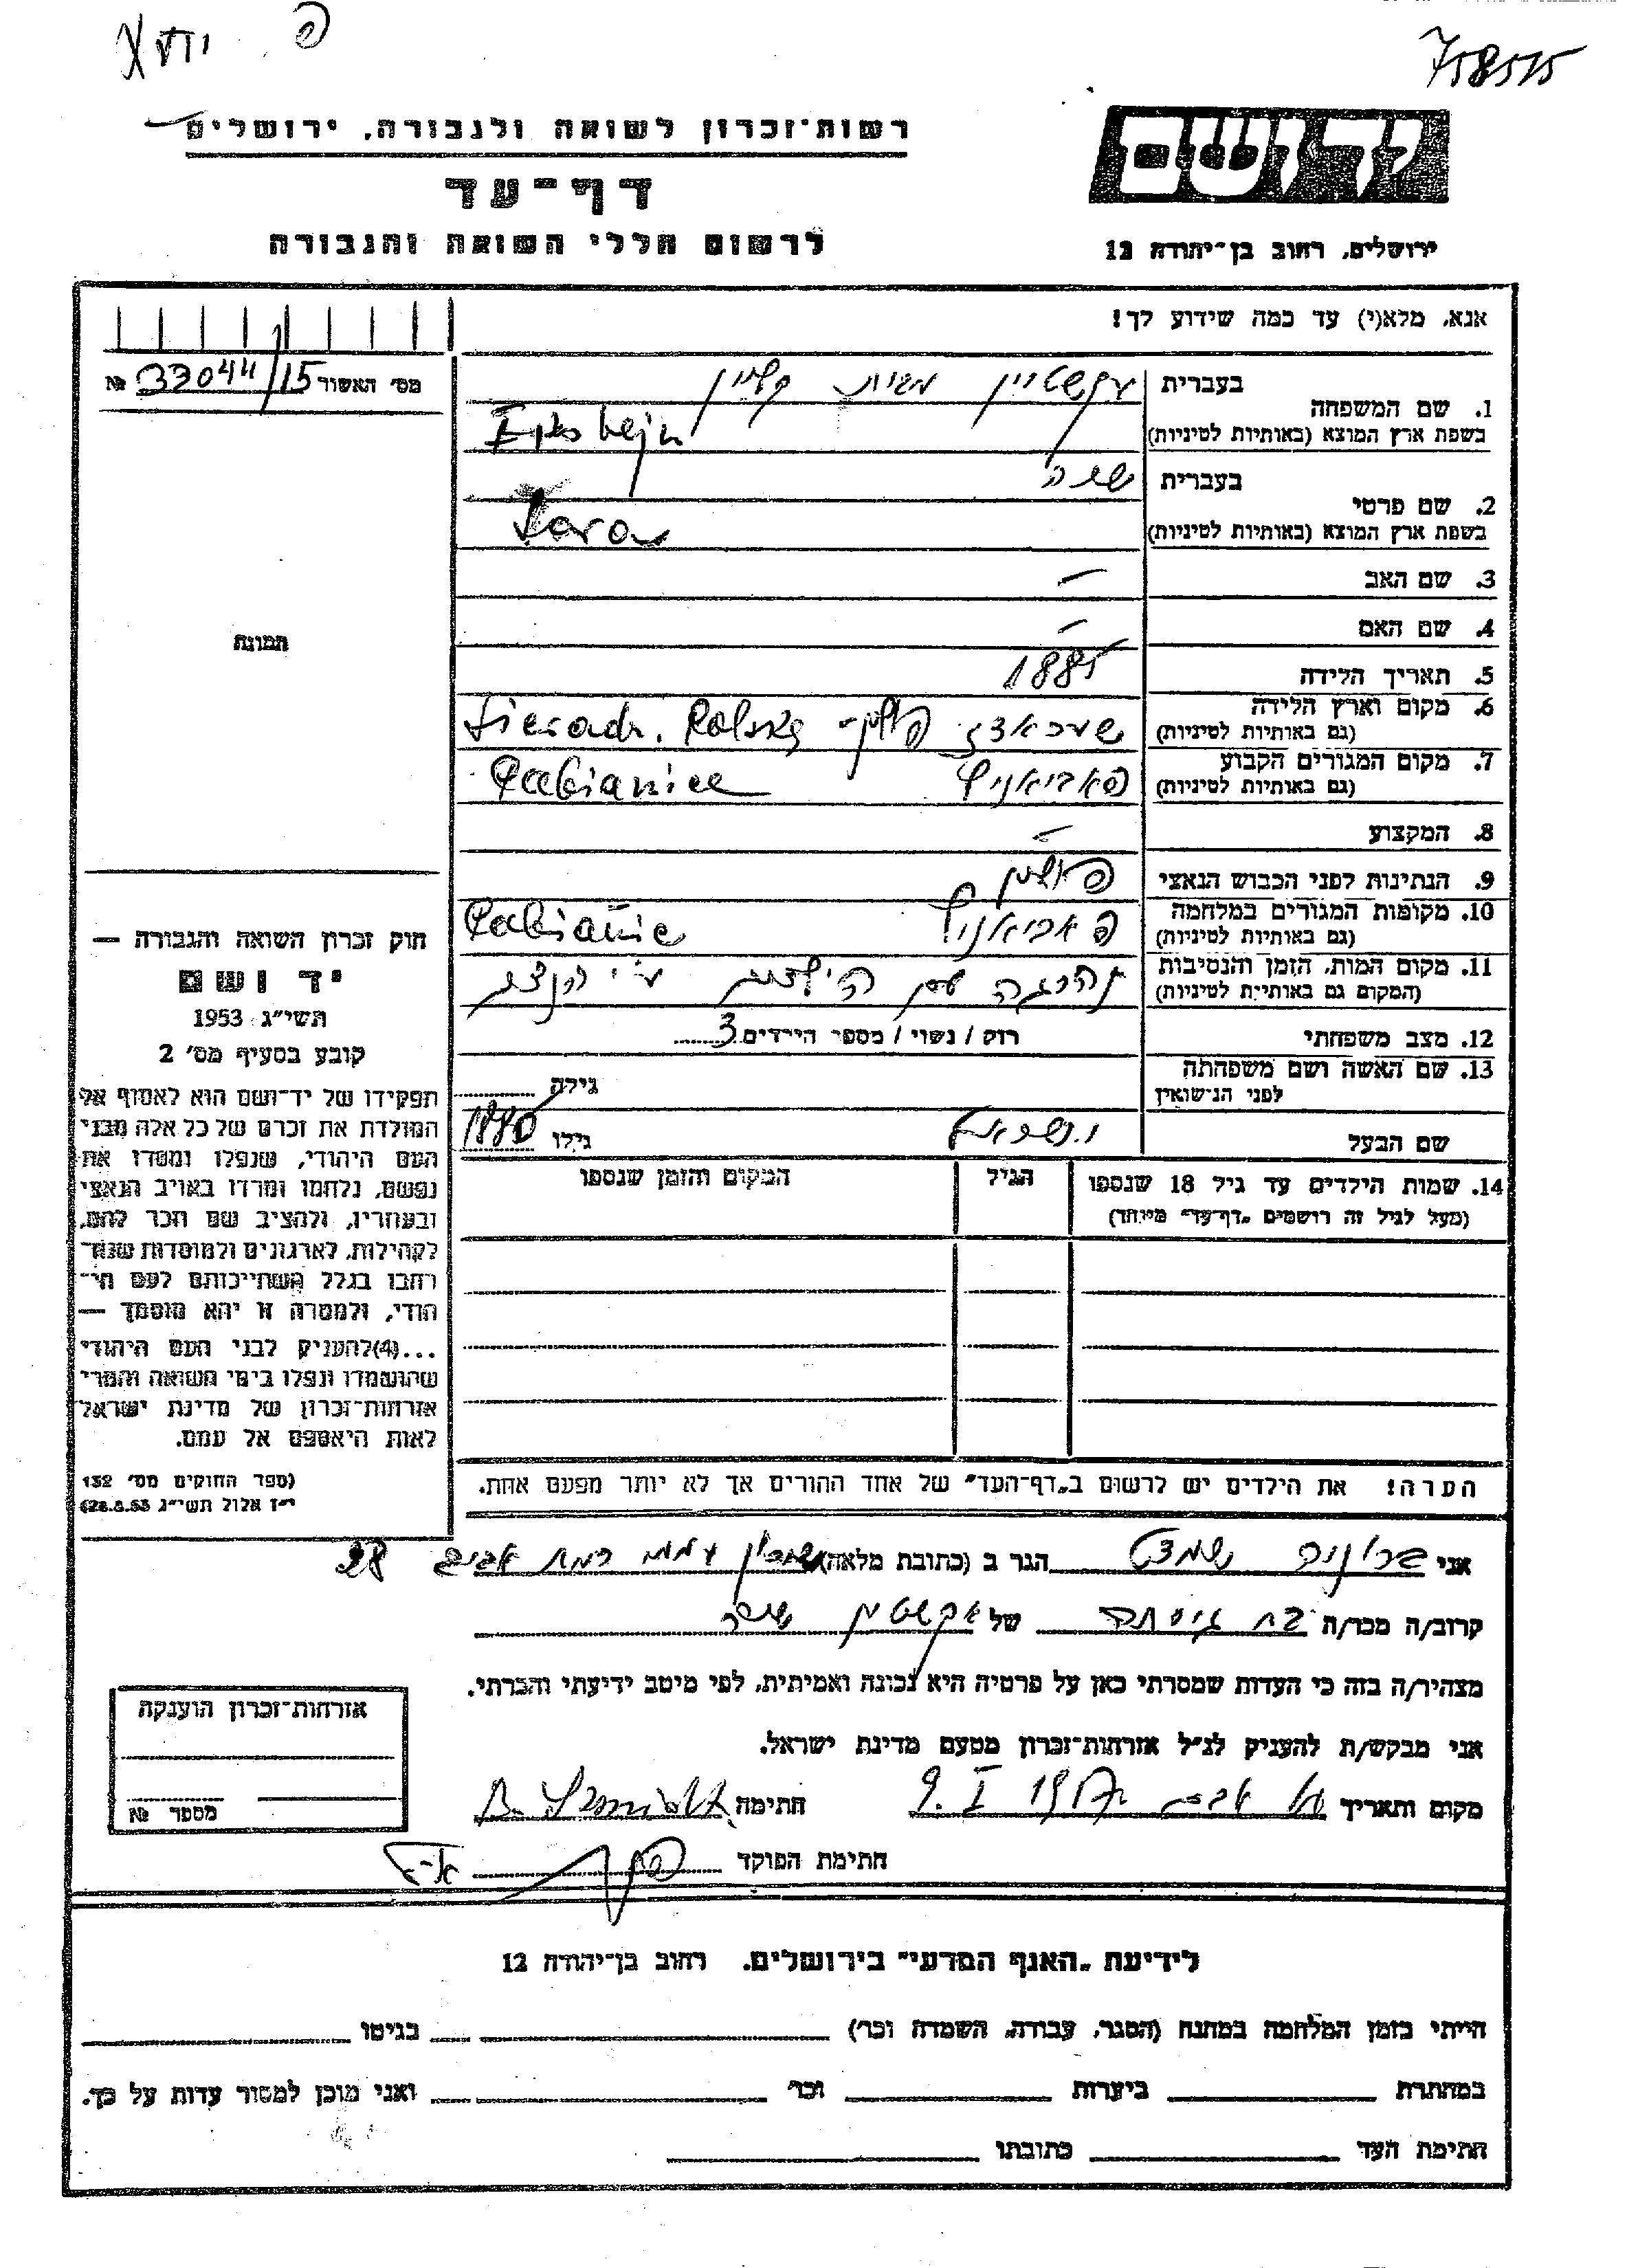 758515
רשות־זכרון לשואה ולגבורה, ירושלים
דף־עד
לרשום חללי השואה והגבורה
יד ושם
ירושלים, רחוב בן־יהודה 12
אנא, מלא(י) עד כמה שידוע לך!
מס׳ האשור 33044/15 №
1. שם המשפחה
בעברית עקשטיין מבית קליין
בשפת ארץ המוצא (באותיות לטיניות) Eksztejn
2. שם פרטי
בעברית שרה
בשפת ארץ המוצא (באותיות לטיניות) Sara
3. שם האב —
4. שם האם —
5. תאריך הלידה 1885
6. מקום וארץ הלידה
(גם באותיות לטיניות) שעראדז פולין Sieradz. Polska
7. מקום המגורים הקבוע
(גם באותיות לטיניות) פאביאניץ Pabianice
8. המקצוע —
9. הנתינות לפני הכבוש הנאצי פולין
10. מקומות המגורים במלחמה
(גם באותיות לטיניות) פאביאניץ Pabianic
11. מקום המות, הזמן והנסיבות
(המקום גם באותיות לטיניות) נהרגה עם הילדים ע״י הנצים
12. מצב משפחתי רוק / נשוי / מספר הילדים 3
13. שם האשה ושם משפחתה
לפני הנישואין
גילה
שם הבעל גילו 1880
14. שמות הילדים עד גיל 18 שנספו
(מעל לגיל זה רושמים „דף־עד״ מיוחד)
הגיל
המקום והזמן שנספו
הערה! את הילדים יש לרשום ב„דף־העד״ של אחד ההורים אך לא יותר מפעם אחת.
תמונה
חוק זכרון השואה והגבורה —
יד ושם
תשי״ג 1953
קובע בסעיף מס׳ 2
תפקידו של יד־ושם הוא לאסוף אל
המולדת את זכרם של כל אלה מבני
העם היהודי, שנפלו ומסרו את
נפשם, נלחמו ומרדו באויב הנאצי
ובעוזריו, ולהציב שם וזכר להם,
לקהילות, לארגונים ולמוסדות שנח־
רבו בגלל השתייכותם לעם הי־
הודי, ולמטרה זו יהא מוסמך —
...(4)להעניק לבני העם היהודי
שהושמדו ונפלו בימי השואה והמרי
אזרחות־זכרון של מדינת ישראל
לאות היאספם אל עמם.
(ספר החוקים מס׳ 132
י״ז אלול תשי״ג 28.8.53)
אני ברוניה שמידט הגר ב (כתובת מלאה) רמת אביב 28
קרוב/ה מכר/ה בת גיסתה של אקשטיין שרה
מצהיר/ה בזה כי העדות שמסרתי כאן על פרטיה היא נכונה ואמיתית, לפי מיטב ידיעתי והכרתי.
אני מבקש/ת להעניק לנ״ל אזרחות־זכרון מטעם מדינת ישראל.
מקום ותאריך תל אביב 9. I 1957 חתימה B. Szmidt
חתימת הפוקד
אזרחות־זכרון הוענקה
מספר №
לידיעת „האגף המדעי״ בירושלים. רחוב בן־יהודה 12
הייתי בזמן המלחמה במחנה (הסגר, עבודה, השמדה וכו׳) בגיטו
במחתרת ביערות וכו׳ ואני מוכן למסור עדות על כך.
חתימת העד כתובתו